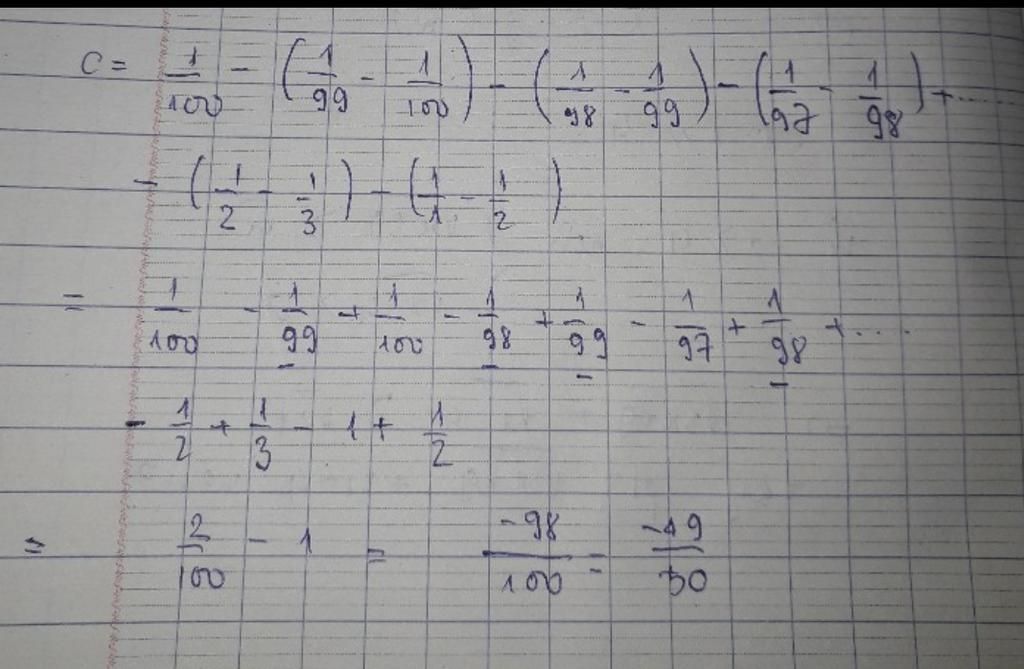 C = 1/100 - (1/99 - 1/100) - (1/98 - 1/99) - (1/97 - 1/98) + ......
- (1/2 - 1/3) - (1/1 - 1/2)
= 1/100 - 1/99 + 1/100 - 1/98 + 1/99 - 1/97 + 1/98 + ....
- 1/2 + 1/3 - 1 + 1/2
= 2/100 - 1 = -98/100 = -49/50